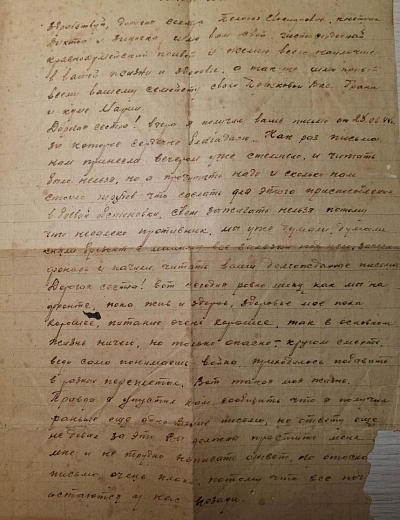 Здравствуй, дорогая сестра Пелагея Евсигновна, племянники
Виктор и Людмила шлю вам свой чистосердечный
красноармейский привет и желаю всего наилучшего
в вашей жизни и здоровье, а так же шлю привет
всему вашему семейству
и куме Марии.
Дорогая сестра! вчера я получил ваше письмо от 23.06.44г.
за которое сердечно благодарю. Как раз письма
нам принесла вечером уже стемнело, и читать
было нельзя, но а прочитать надо и сколько нам
стоило трудов что сделать для этого приспособление
в боевой обстановке, свет зажигать нельзя потому
что недалеко противник, мы уже думали, думали
сняли брезент с машины все залезли под него, зажгли
фонарь и начали читать ваши долгожданные письма
Дорогая сестра! Вот сегодня ровно месяц как мы на
фронте, пока жив и здоров, здоровье мое пока
хорошее, питание очень хорошее, так в основном
жизнь ничего, но только опасно, кругом смерть,
ведь сама понимаешь война, приходилось побывать
в разных переплетах. Вот такая моя жизнь.
Правда я упустил вам сообщить что я получил
раньше еще одно ваше письмо, но ответу еще
не давал за это вы должны простить меня
мне и не трудно написать ответ, но отослать
письмо очень плохо, потому что все поч
остаются у нас позади!